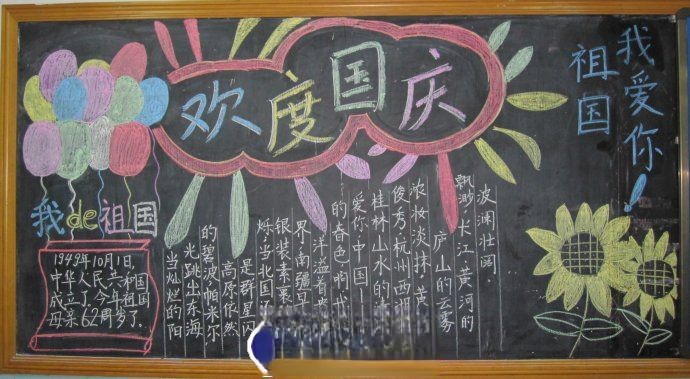 欢度国庆
祖国
我爱你!
我de祖国
1949年10月1日,
中华人民共和国
成立了,今年祖国
母亲62周岁了。
当灿烂的阳
光跳出东海
的碧波,帕米尔
高原依然
是群星闪
烁。当北国
银装素裹
界,南疆早
洋溢着
的春色啊,
爱你,中国!
桂林山水的
俊秀,杭州西湖
浓妆淡抹,黄
庐山的云雾
飘渺,长江、黄河的
波澜壮阔.